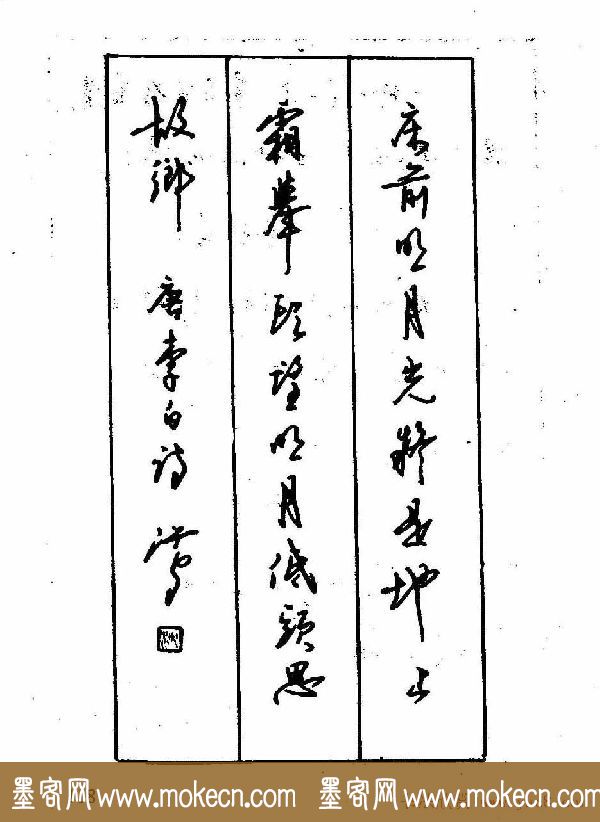 床前明月光疑是地上
霜举头望明月低头思
故鄉 唐李白诗
墨客网 www.mokecn.com 墨客网 www.mokecn.com